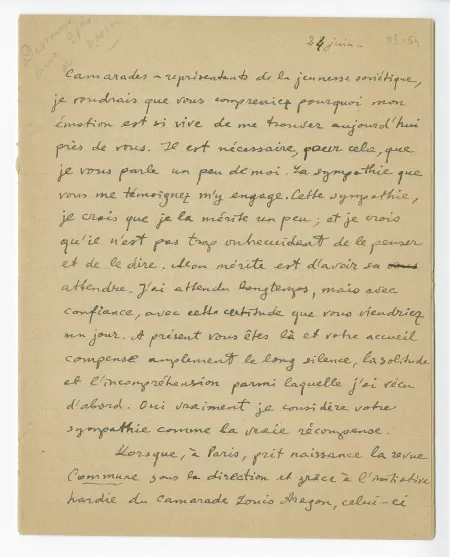 Discours
aux Etu
de Moscou
24 juin — 93-54
Camarades – représentants de la jeunesse soviétique,
je voudrais que vous compreniez pourquoi mon
émotion est si vive de me trouver aujourd'hui
près de vous. Il est nécessaire, pour cela, que
je vous parle un peu de moi. La sympathie que
vous me témoignez m'y engage. Cette sympathie,
je crois que je la mérite un peu ; et je crois
qu'il n'est pas trop outrecuidant de le penser
et de le dire. Mon mérite est d'avoir su vous
attendre. J'ai attendu longtemps, mais avec
confiance, avec cette certitude que vous viendriez
un jour. A présent vous êtes là et votre accueil
compense amplement le long silence, la solitude
et l'incompréhension parmi laquelle j'ai vécu
d'abord. Oui vraiment je considère votre
sympathie comme la vraie récompense.
Lorsque, à Paris, prit naissance la revue
Commune sous la direction et grâce à l'initiative
hardie du camarade Louis Aragon, celui-ci